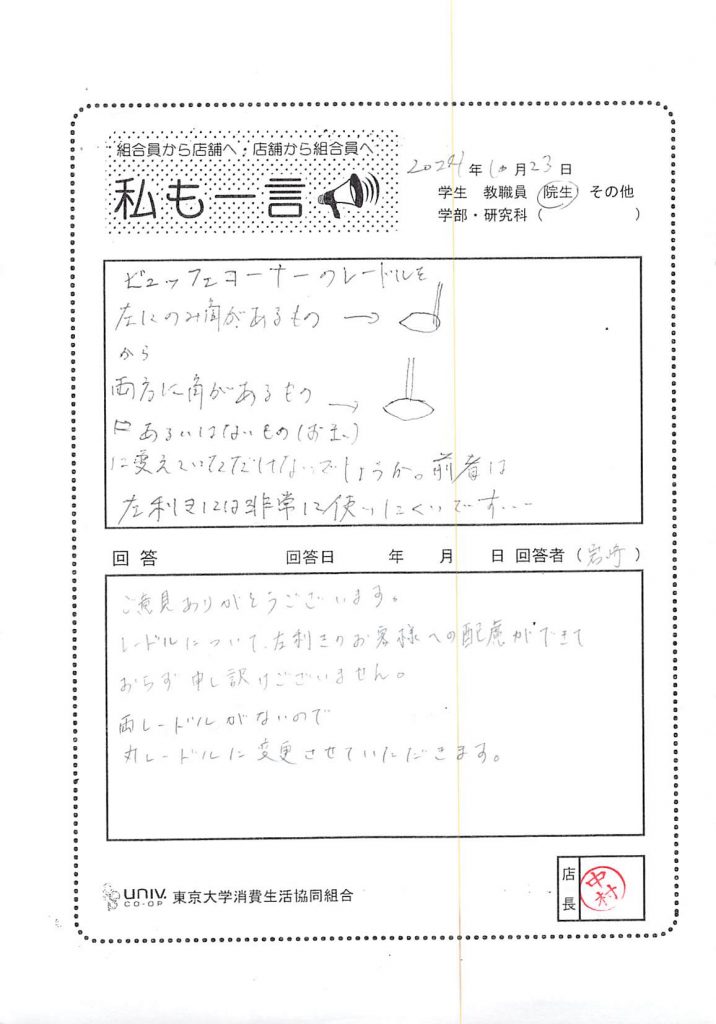 組合員から店舗へ・店舗から組合員へ
私も一言
2024年10月23日
学生 教職員 院生 その他
学部・研究科( )
ビュッフェコーナーのレードルを
左にのみ角があるもの →
から
両方に角があるもの →
あるいはないもの(お玉)
に変えていただけないでしょうか。前者は
左利きには非常に使いにくいです...
回答 回答日 年 月 日 回答者(岩崎)
ご意見ありがとうございます。
レードルについて、左利きのお客様への配慮ができて
おらず申し訳けございません。
両レードルがないので
丸レードルに変更させていただきます。
UNIV. CO-OP 東京大学消費生活協同組合
店長 中村